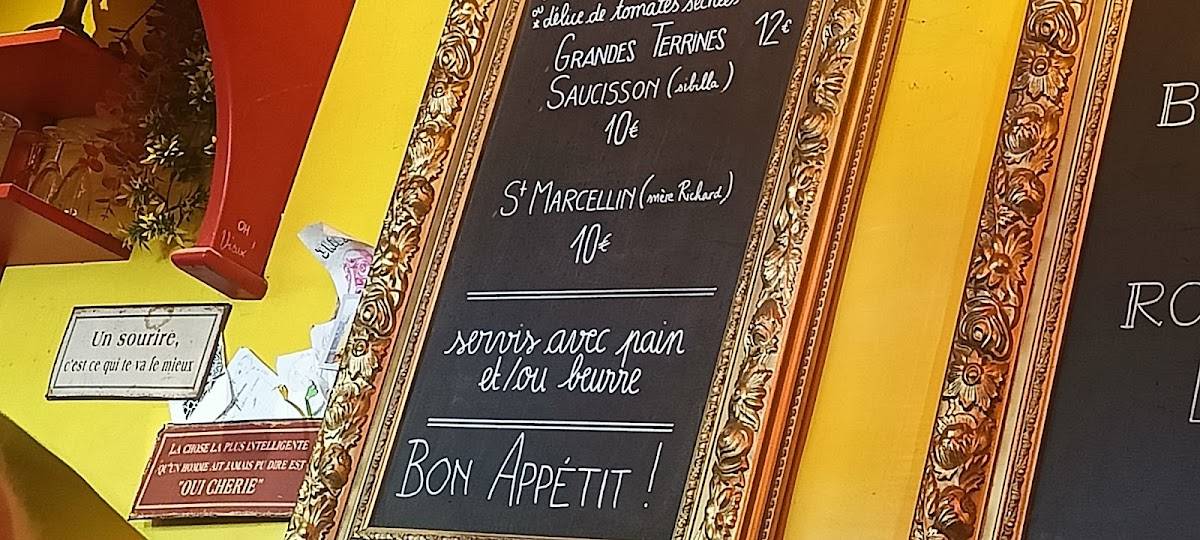 ou délice de tomates séchées
GRANDES TERRINES 12€
SAUCISSON (sibilla)
10€
St MARCELLIN (mère Richard)
10€
servis avec pain
et/ou beurre
BON APPÉTIT !
OH
Vieux !
Un sourire,
c'est ce qui te va le mieux
LA CHOSE LA PLUS INTELLIGENTE
QU'UN HOMME AIT JAMAIS PU DIRE EST
"OUI CHERIE"
B
RO